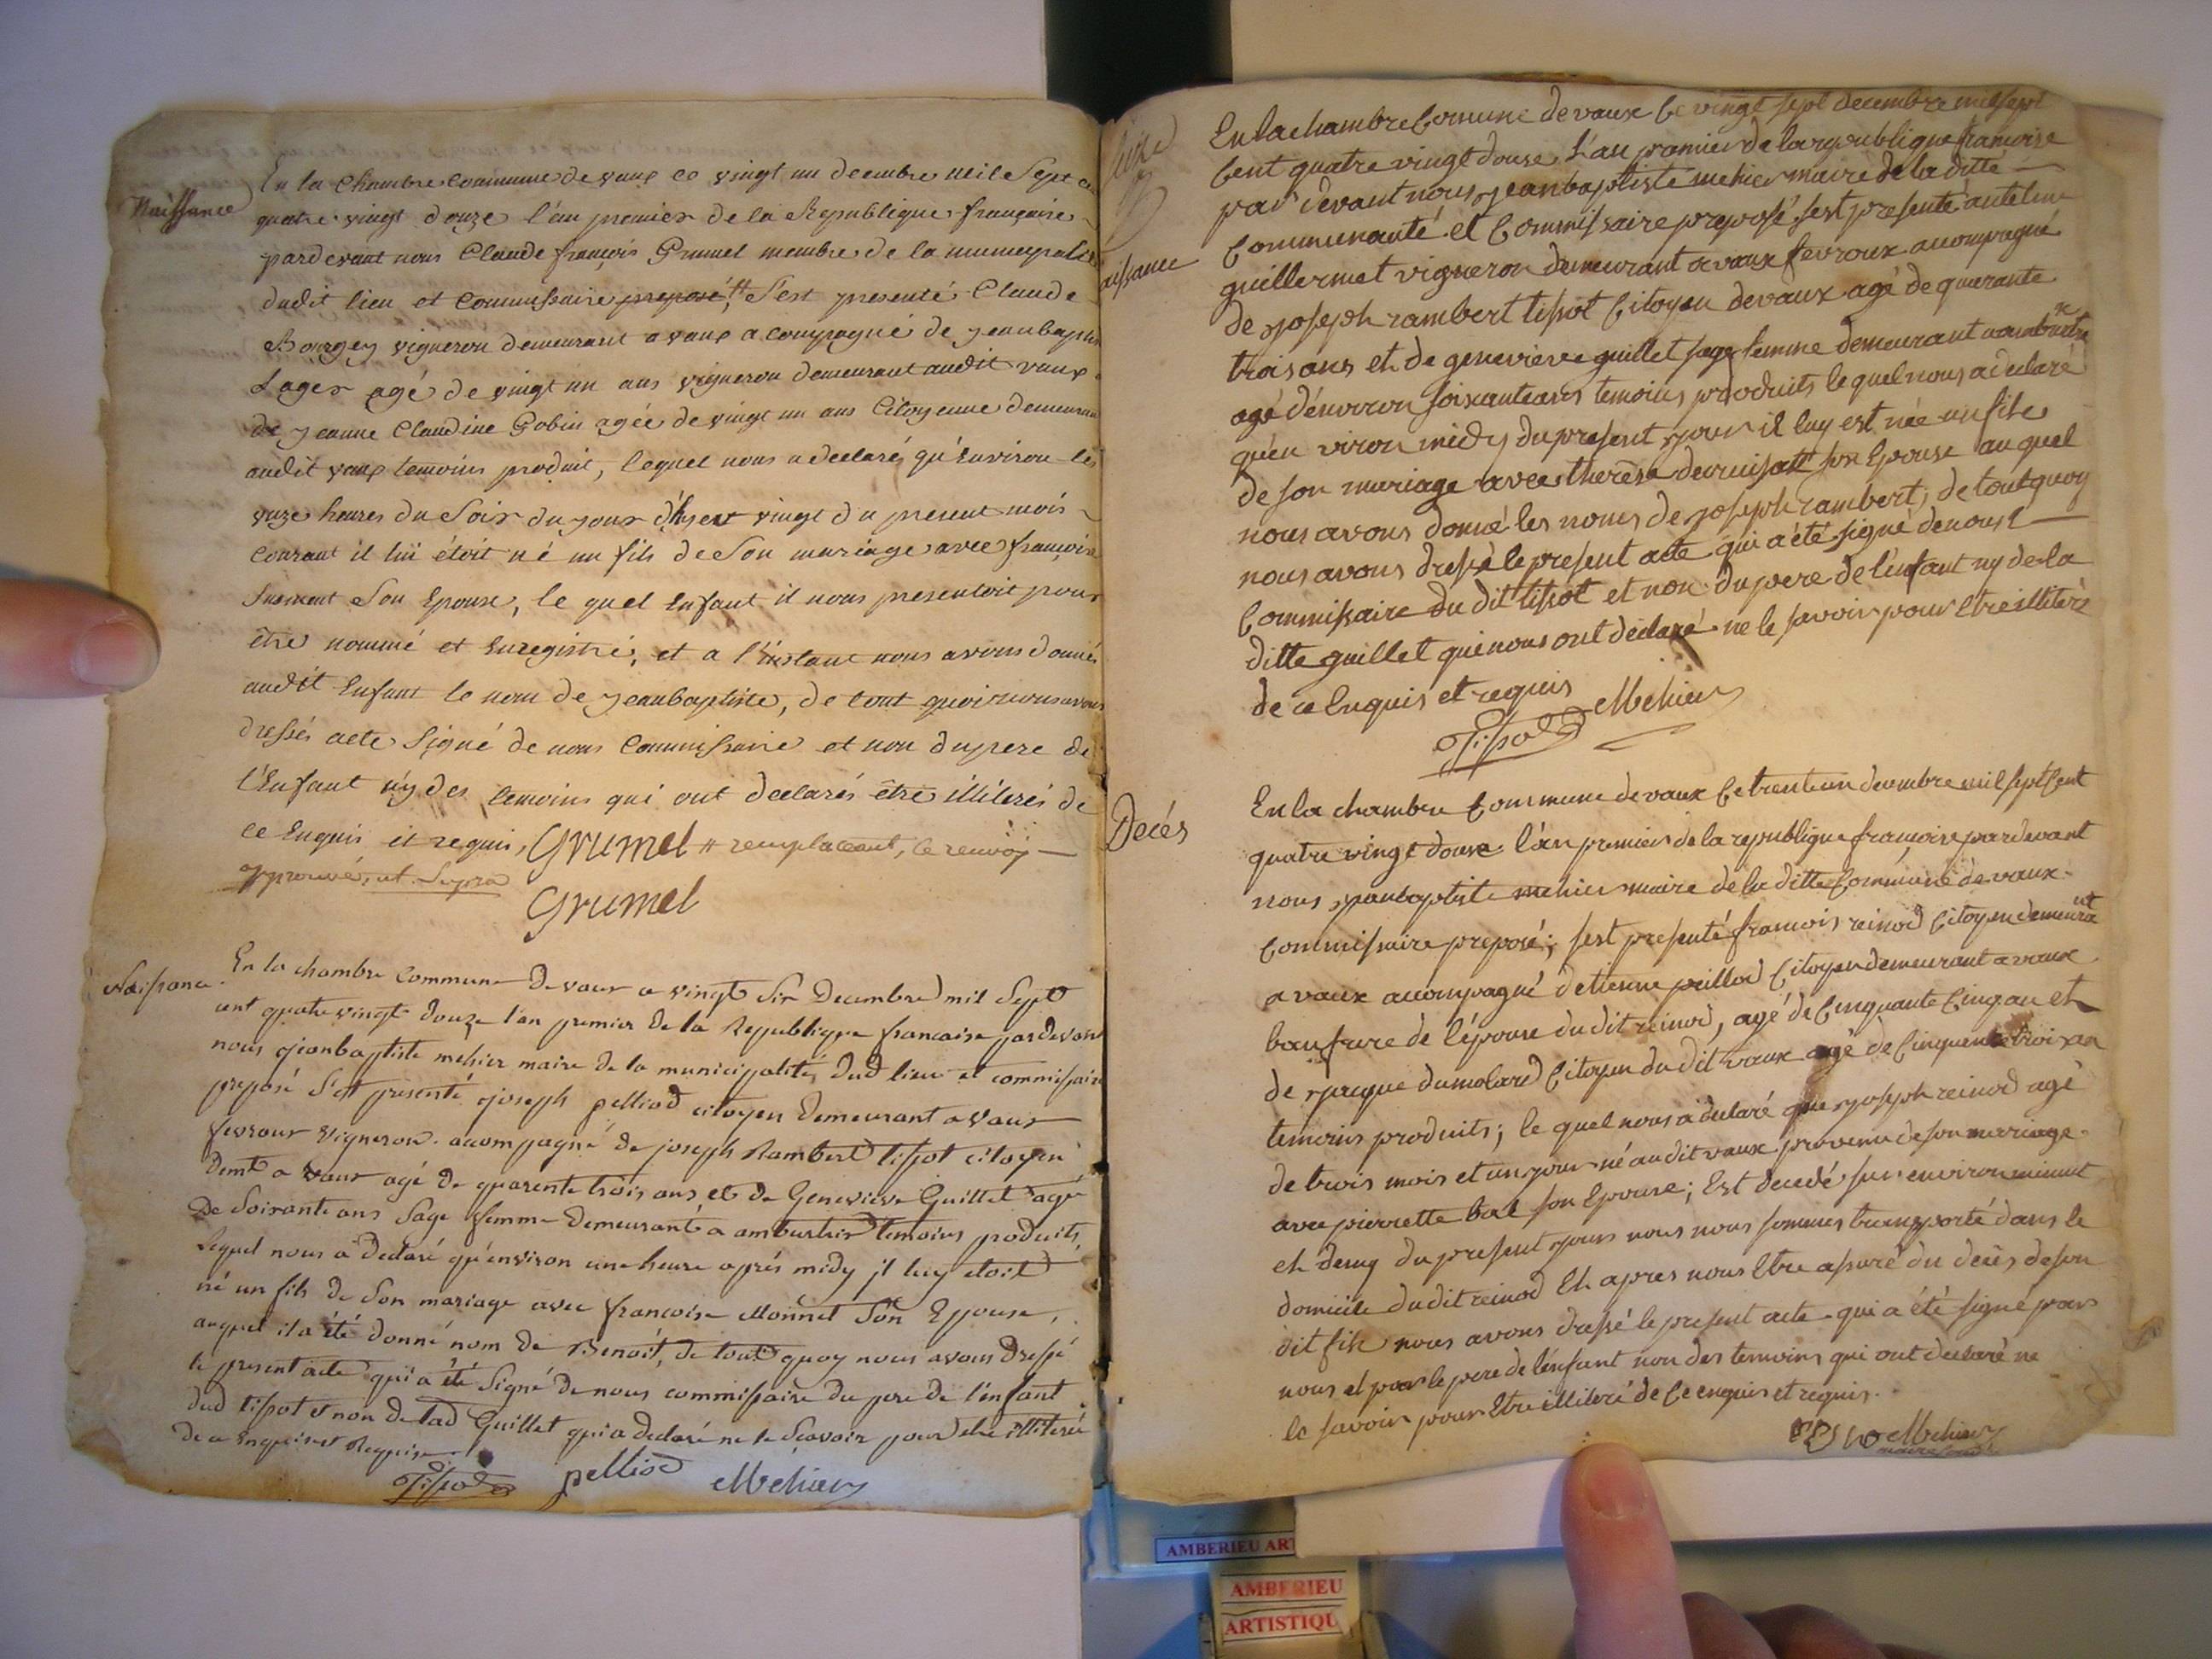 Naissance
En la chambre commune de vaux ce vingt un decembre mil Sept cen
quatre vingt douze l'an premier de la Republique française
pardevant nous Claude françois Grumel membre de la municipalité
dudit lieu et Commissaire preposé, # S'est presenté Claude
Bourgey vigneron demeurant a vaux acompagné de jeanbaptis
Lager agé de vingt un ans vigneron demeurant audit vaux
de jeanne Claudine Gobin agée de vingt un ans Citoyenne demeuran
audit vaux temoins produit, lequel nous a declarés qu'Environ les
onze heures du Soir du jour d'hyer vingt du present mois
Courant il lui étoit né un fils de Son mariage avec françoise
Son Epouse, le quel Enfant il nous presentoit pour
être nommé et Enregistré, et a l'instant nous avons donnés
audit Enfant le nom de jeanbaptiste, de tout quoi nous avons
dressés acte Signé de nous Commissaire et non du pere de
l'Enfant n'y des temoins qui ont declarés être illiterés de
ce Enquis et requis, Grumel # remplaceant, le renvoy
approuvé, ut Supra
Grumel
Naissance
En la chambre Commune de vaux ce vingt Six Decembre mil Sept
cent quatre vingt douze l'an premier de la Republique francaise pardevant
nous jeanbaptiste mehier maire de la municipalité, dud lieu et commissaire
preposé S'est presenté joseph pelliod citoyen demeurant a vaux
fevroux vigneron acompagné de joseph Rambert tissot citoyen
demt a vaux agé de quarente trois ans et de Genevieve Guillet agé
de Soixante ans Sage femme demeurant a ambutrix temoins produits
lequel nous a declaré qu'environ une heure aprés midy il luy etoit
né un fils de Son mariage avec francoise Monnet Son Epouse,
auquel il a été donné nom de Benoit, de tout quoy nous avons dressé
le present acte qui a été Signé de nous commissaire du pere de l'enfant
dud tissot et non de lad Guillet qui a declaré ne le Scavoir pour etre illiteré
de ce Enquise et Requise
Tissot pelliod Mehier
aissance
En la chambre Comune de vaux Ce vingt sept decembre mil sept
Cent quatre vingt douse L'an premier de la republique francoise
par devant nous jean baptiste mehier maire de la ditte
Communauté et Commissaire preposé sest presenté antelme
guillermet vigneron demeurant a vaux fevroux accompagné
de joseph rambert tissot Citoyen de vaux agé de quarante
trois ans et de genevieve guillet sage femme demeurant a ambutrix
agé d'environ soixante ans temoins produits le quel nous a declaré
qu'en viron midy du present jour il luy est née un fils
de son mariage avec therèse son Epouse au quel
nous avons donné les noms de joseph rambert, de tout quoy
nous avons dressé le present acte qui a été signé de nous
Commissaire du dit tissot et non du pere de l'enfant ny de la
ditte guillet qui nous ont declaré ne le savoir pour Etre illiteré
de ce Enquis et requis Mehier
Tissot
Decés
En la chambre Commune de vaux Ce trente un decembre mil sept Cent
quatre vingt douse l'an premier de la republique francoise par devant
nous jeanbaptiste mehier maire de la ditte Commune de vaux
Commissaire preposé; sest presenté francois reinod Citoyen demeurant
a vaux accompagné d'etienne peillod Citoyen demeurant a vaux
bau frere de l'épouse du dit reinod, agé de Cinquante Cinq an et
de jacque dumolard Citoyen du dit vaux agé de Cinquente trois an
temoins produits; le quel nous a declaré que joseph reinod agé
de trois mois et un jour né au dit vaux provenu de son mariage
avec pierrette bal son Epouse; Est decedé sur environ minuit
et demy du present jour nous nous sommes transporté dans le
domicile du dit reinod Et apres nous Etre assuré du decès de son
dit fils nous avons dressé le present acte qui a été signé par
nous et par le pere de l'enfant non des temoins qui ont declaré ne
le savoir pour Etre illiteré de Ce enquis et requis.
Mehier
AMBERIEU AR
AMBERIEU
ARTISTIQU